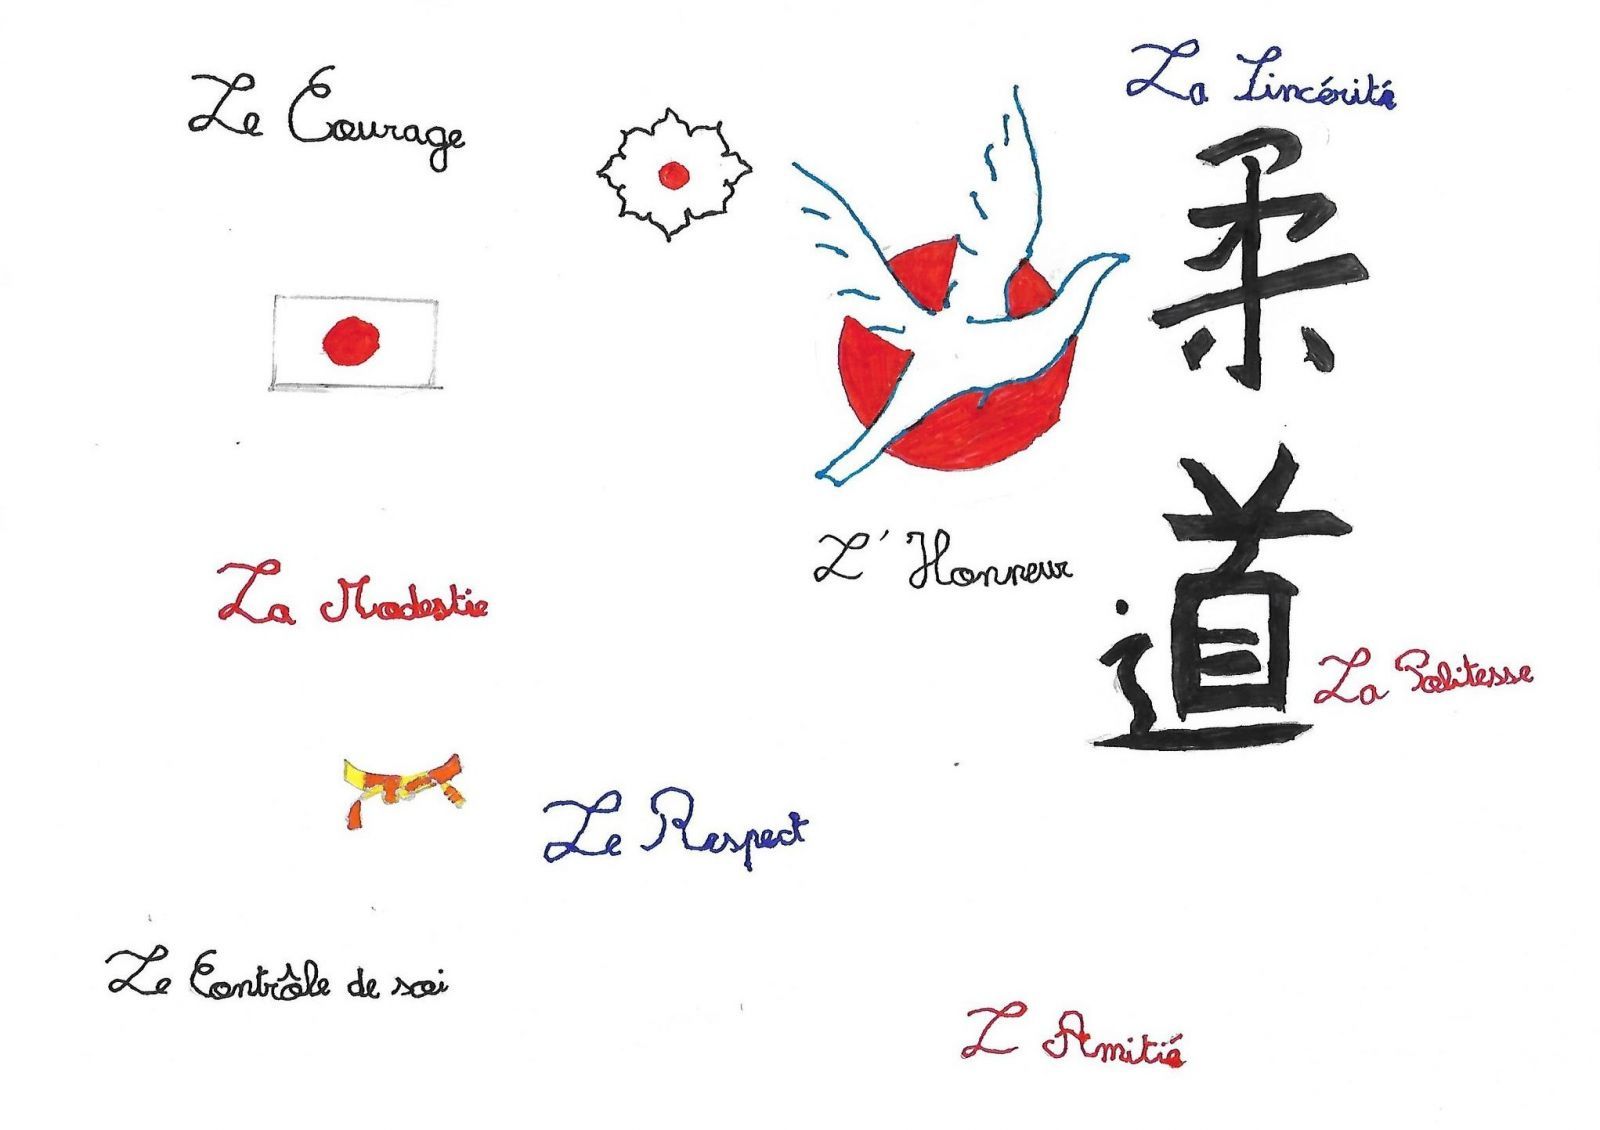 Le Courage
La Sincérité
柔
道
L'Honneur
La Modestie
La Politesse
Le Respect
Le Contrôle de soi
L Amitié